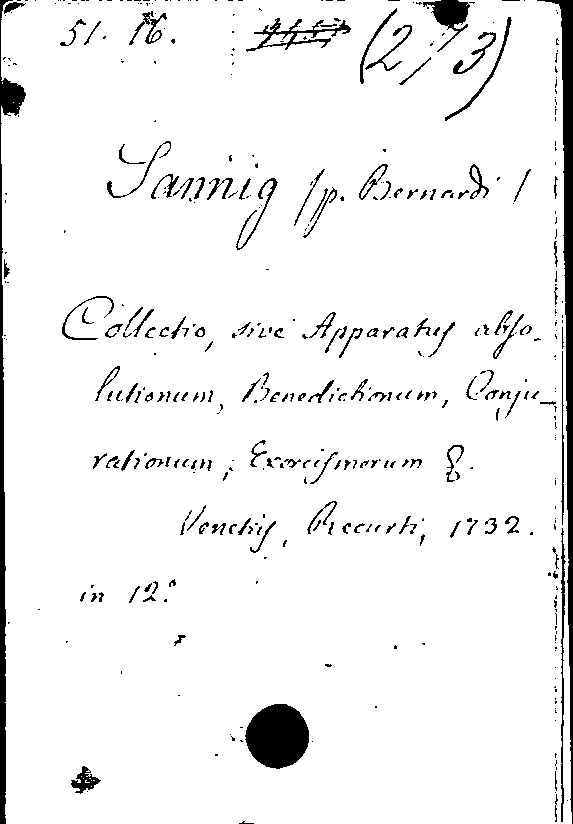 51. 16. (273)
Sannig /p. Bernardi/
Collectio, sive Apparatus abso-
lutionum, Benedictionum, Conju-
rationum, Exorcismorum &.
Venetiis, Recurti, 1732.
in 12.º